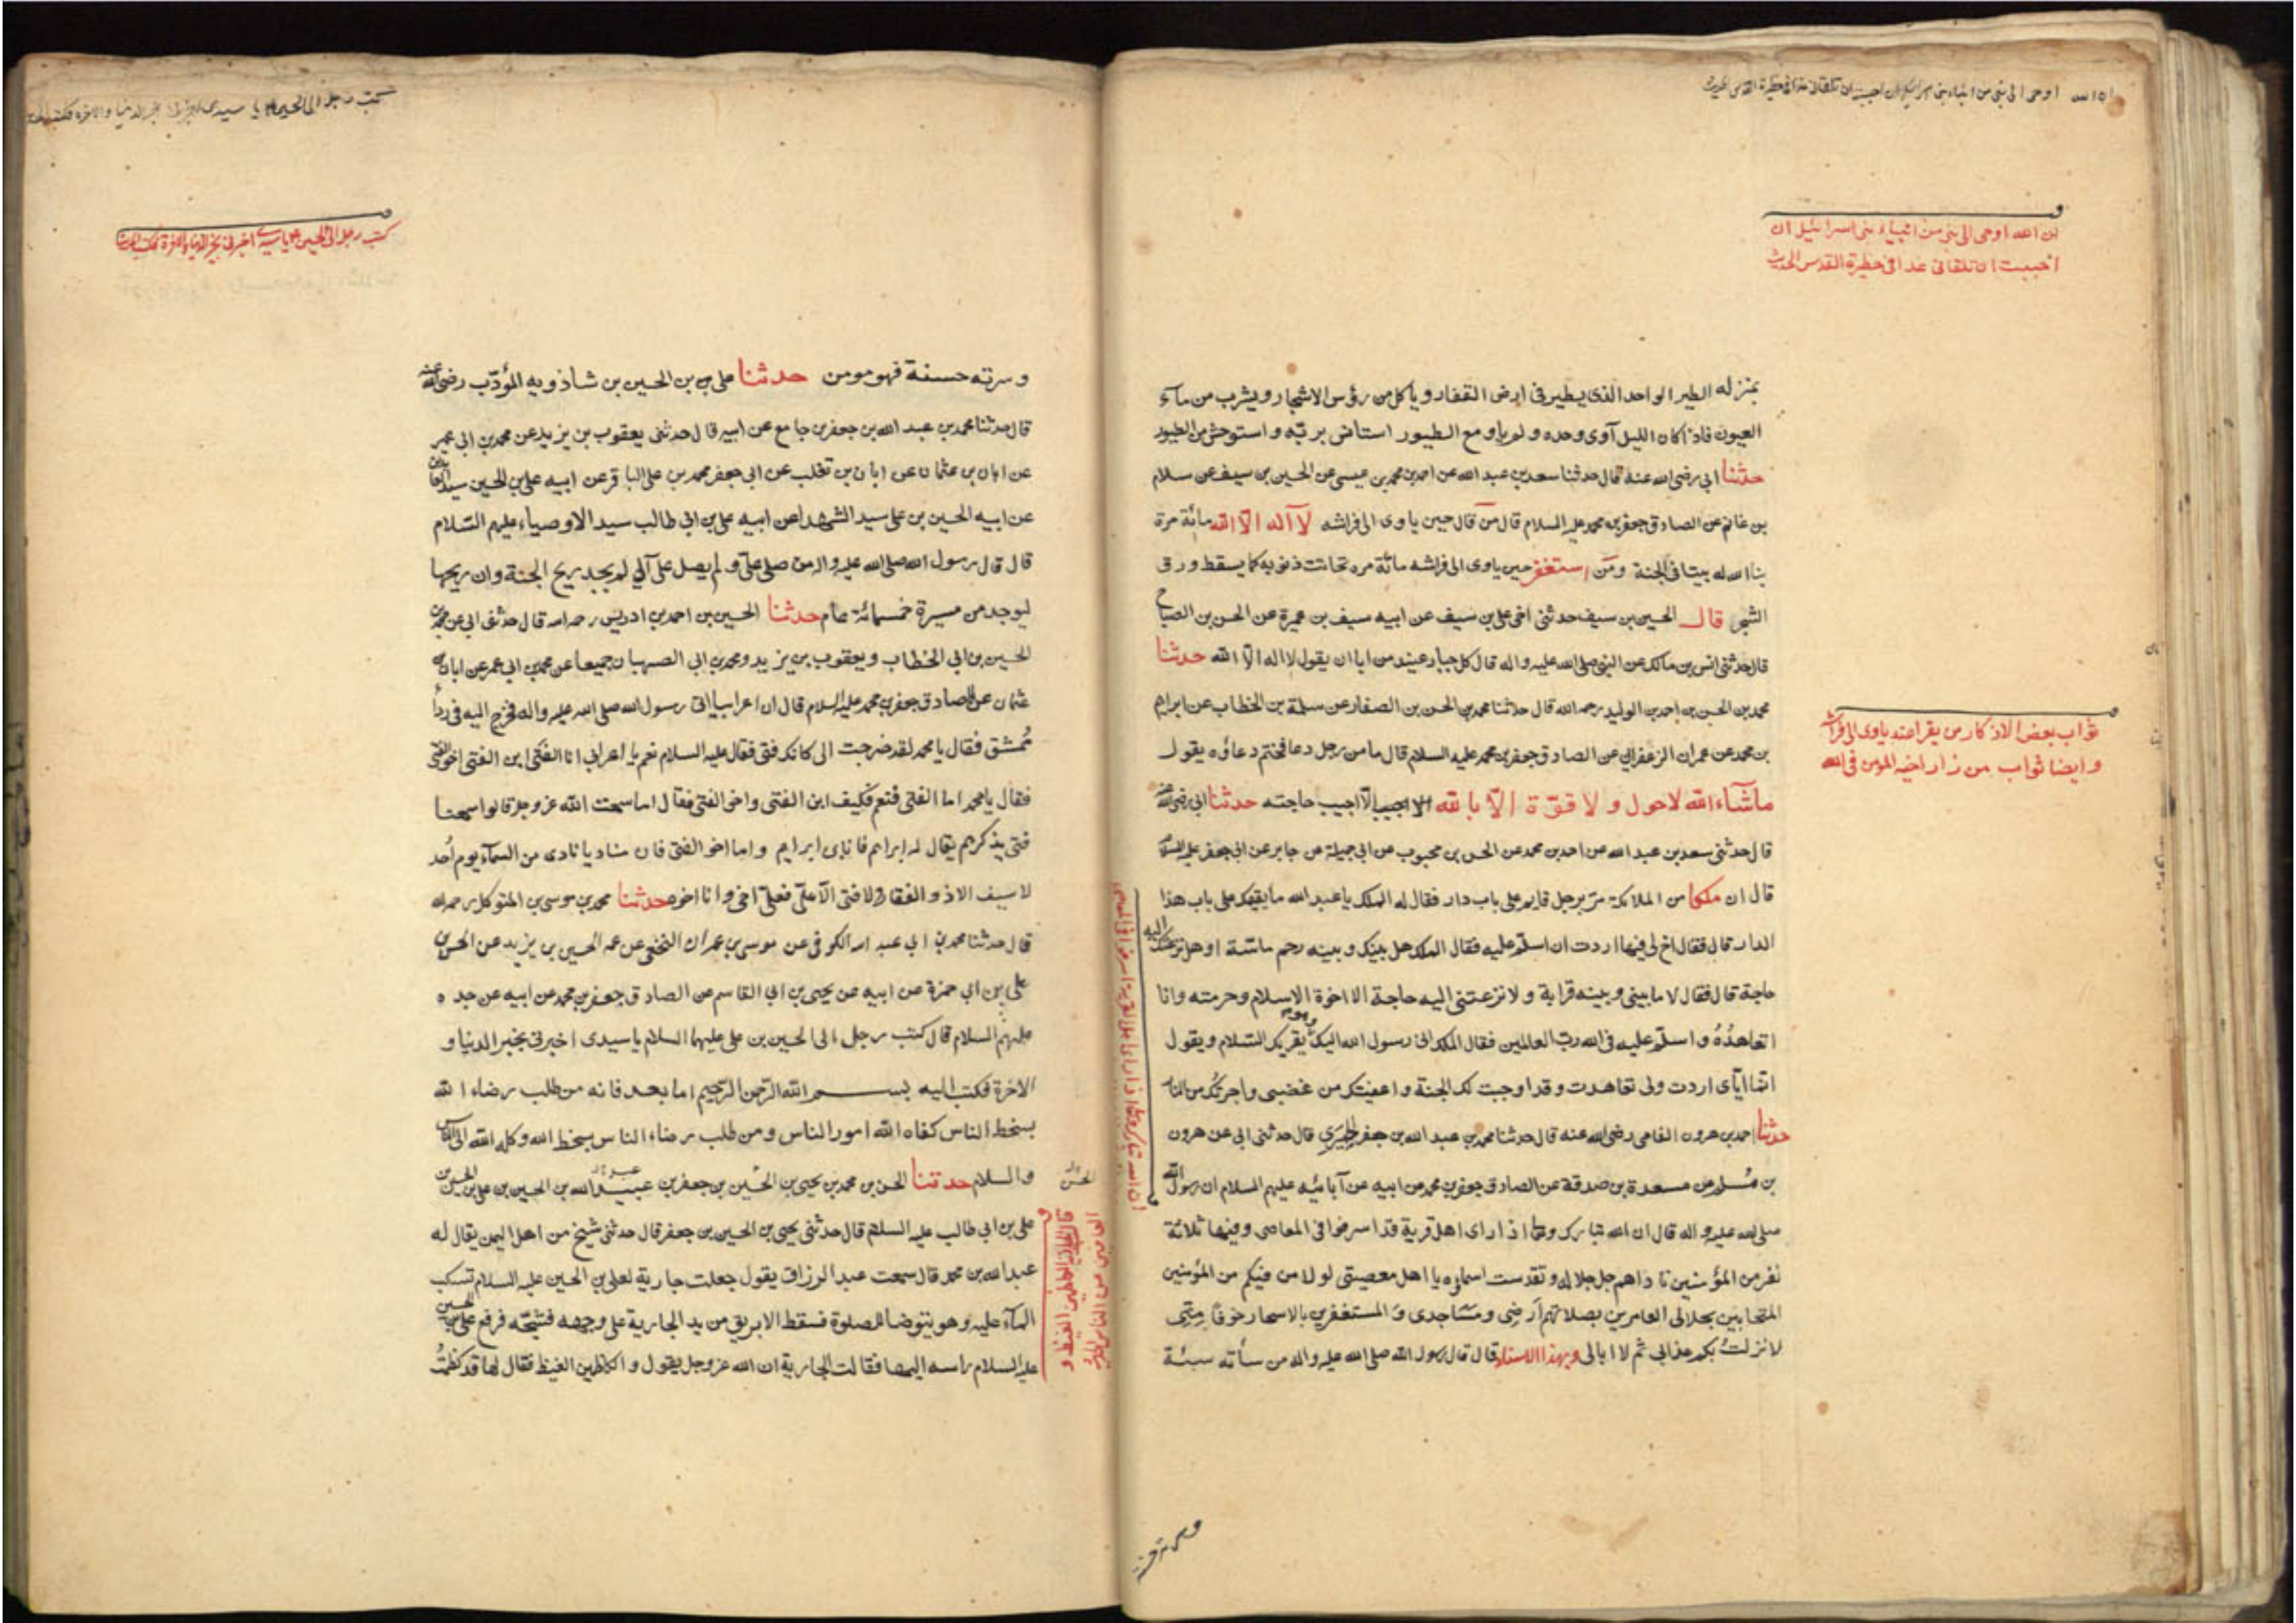 ان الله اوحى الى نبى من انبياء بنى اسرائيل ان احببت ان تلقانى غدا فى حظيرة القدس الحديث
ان الله اوحى الى نبى من انبياء بنى اسرائيل ان
احببت ان تلقانى غدا فى حظيرة القدس الحديث
بمنزله الطير الواحد الذى يطير فى ارض القفار وياكل من رؤس الاشجار ويشرب من مآء
العيون فاذا كان الليل آوى وحده ولم ياو مع الطيور استانس بربّه واستوحش من الطيور
حدثنا ابى رضى الله عنه قال حدثنا سعد بن عبد الله عن احمد بن محمد بن عيسى عن الحسين بن سيف عن سلام
بن غانم عن الصادق جعفر بن محمد عليه السلام قال من قال حين ياوى الى فراشه لآ آله الّا الله مائة مرة
بنا الله له بيتا فى الجنة ومَن استغفر حين ياوى الى فراشه مائة مره تحاتت ذنوبه كما يسقط ورق
الشجر قال الحسين بن سيف حدثنى اخى على بن سيف عن ابيه سيف بن عميرة عن الحسن بن الصباح
قال حدثنى انس بن مالك عن النبى صلى الله عليه واله قال كل جبار عنيد من ابا ان يقول لا اله الّا الله حدثنا
محمد بن الحسن بن احمد بن الوليد رحمه الله قال حدثنا محمد بن الحسن بن الصفار عن سلمة بن الخطاب عن ابراهيم
بن محمد عن عمران الزعفرانى عن الصادق جعفر بن محمد عليه السلام قال ما من رجل دعا فختم دعاؤه يقول
ماشآء الله لا حول ولا قوّة الّا بالله الّا اجيب حاجته حدثنا ابى رضى الله عنه
قال حدثنى سعد بن عبد الله عن احمد بن محمد عن الحسن بن محبوب عن ابى جميلة عن جابر عن ابى جعفر عليه السلام
قال ان ملكا من الملائكة مرّ برجل قايم على باب دار فقال له الملك يا عبد الله ما يقيمك على باب هذا
الدار قال فقال اخ لى فيها اردت ان اسلم عليه فقال الملك هل بينك وبينه رحم ماسّة او هل نزعتك اليه
حاجة قال فقال لا ما بينى وبينه قرابة ولا نزعتنى اليه حاجة الا اخوة الاسلام وحرمته وانا
اتعاهدُهُ واسلّم عليه فى الله ربّ العالمين فقال الملك انى رسول الله اليك وهو يقريك السّلام ويقول
انما ايّاى اردت ولى تعاهدت وقد اوجبت لك الجنة واعفيتك من غضبى واجرتُك من النار
حدثنا احمد بن هرون الفامى رضى الله عنه قال حدثنا محمد بن عبد الله بن جعفر الحميرى قال حدثنى ابى عن هرون
بن مُسلم عن مسعدة بن صدقة عن الصادق جعفر بن محمد عن ابيه عن آبائه عليهم السلام ان رسول الله
صلى الله عليه واله قال ان الله تبارك وتعا اذا راى اهل قرية قد اسرفوا فى المعاصى وفيها ثلاثة
نفر من المؤمنين ناداهم جل جلاله وتقدست اسماؤه يا اهل معصيتى لولا من فيكم من المؤمنين
المتحابين بجلالى العامرين بصلاتهم اَرضى ومسَاجدى وَالمستغفرين بالاسحار خوفًا مِنّى
لانزلتُ بكم عذابى ثم لا ابالى وبهذا الاسناد قال قال رسول الله صلى الله عليه واله من سأته سيئة
ثواب بعض الاذكار من يقرا عند ياوى الى فراشه
وايضا ثواب من زار اخيه المومن فى الله
ان الله تبارك وتعا اذا راى اهل قرية اسرفوا فى المعاصى
وسرته حسنة
كتب رجل الى الحسين يا سيدى اخبرنى بخير الدنيا والاخرة فكتب
كتب رجل الى الحسين يا سيدى اخبرنى بخير الدنيا والاخرة فكتب
وسرته حسنة فهو مومن حدثنا على بن الحسين بن شاذويه المؤدّب رضى الله عنه
قال حدثنا محمد بن عبد الله بن جعفر بن جامع عن ابيه قال حدثنى يعقوب بن يزيد عن محمد بن ابى عمير
عن ابان بن عثمان عن ابان بن تغلب عن ابى جعفر محمد بن على الباقر عن ابيه على بن الحسين سيد العابدين
عن ابيه الحسين بن على سيد الشهدا عن ابيه على بن ابى طالب سيد الاوصياء عليهم السّلام
قال قال رسول الله صلى الله عليه واله من صلى علىّ ولم يصل على آلى لم يجد ريح الجنة وان ريحها
ليوجد من مسيرة خمسمائة عام حدثنا الحسين بن احمد بن ادريس رحمه الله قال حدثنى ابى عن محمد بن
الحسين بن ابى الخطاب ويعقوب بن يزيد ومحمد بن ابى الصهبان جميعا عن محمد بن ابى عمير عن ابان بن
عثمان عن الصادق جعفر بن محمد عليه السلام قال ان اعرابيا اتى رسول الله صلى الله عليه واله فخرج اليه فى ردأ
مُمشق فقال يا محمد لقد خرجت الى كانك فتى فقال عليه السلام نعم يا اعرابى انا الفتى ابن الفتى اخو الفتى
فقال يا محمد اما الفتى فنعم فكيف ابن الفتى واخى الفتى فقال اما سمعت الله عز وجل قالوا سمعنا
فتى يذكرهم يقال له ابراهيم فانا بن ابراهيم واما اخو الفتى فان مناديا نادى من السمآء يوم اُحد
لا سيف الا ذو الفقار ولا فتى الّا علىّ فعلىّ اخى وانا اخوه حدثنا محمد بن موسى بن المتوكل رحمه الله
قال حدثنا محمد بن ابى عبد الله الكوفى عن موسى بن عمران النخعى عن عمه الحسين بن يزيد عن الحسن بن
على بن ابى حمزة عن ابيه عن يحيى بن ابى القاسم عن الصادق جعفر بن محمد عن ابيه عن جده
عليهم السلام قال كتب رجل الى الحسين بن على عليهما السلام يا سيدى اخبرنى بخير الدنيا و
الاخرة فكتب اليه بسم الله الرّحمن الرّحيم اما بعد فانه من طلب رضاء الله
بسخط الناس كفاه الله امور الناس ومن طلب رضاء الناس بسخط الله وكله الله الى الناس
والسلام حدثنا الحسن بن محمد بن يحيى بن الحسين بن جعفر بن عبيد الله بن الحسين بن على بن الحسين بن
على بن ابى طالب عليه السلام قال حدثنى يحيى بن الحسين بن جعفر قال حدثنى شيخ من اهل اليمن يقال له
عبد الله بن محمد قال سمعت عبد الرزاق يقول جعلت جارية لعلى بن الحسين عليه السلام تسكب
المآء عليه وهو يتوضا للصلوة فسقط الابريق من يد الجارية على وجهه فشجّه فرفع على بن الحسين
عليه السلام راسه اليها فقالت الجارية ان الله عز وجل يقول والكاظمين الغيظ فقال لها قد كظمتُ
الحسن
والكاظمين الغيظ و
العافين عن الناس